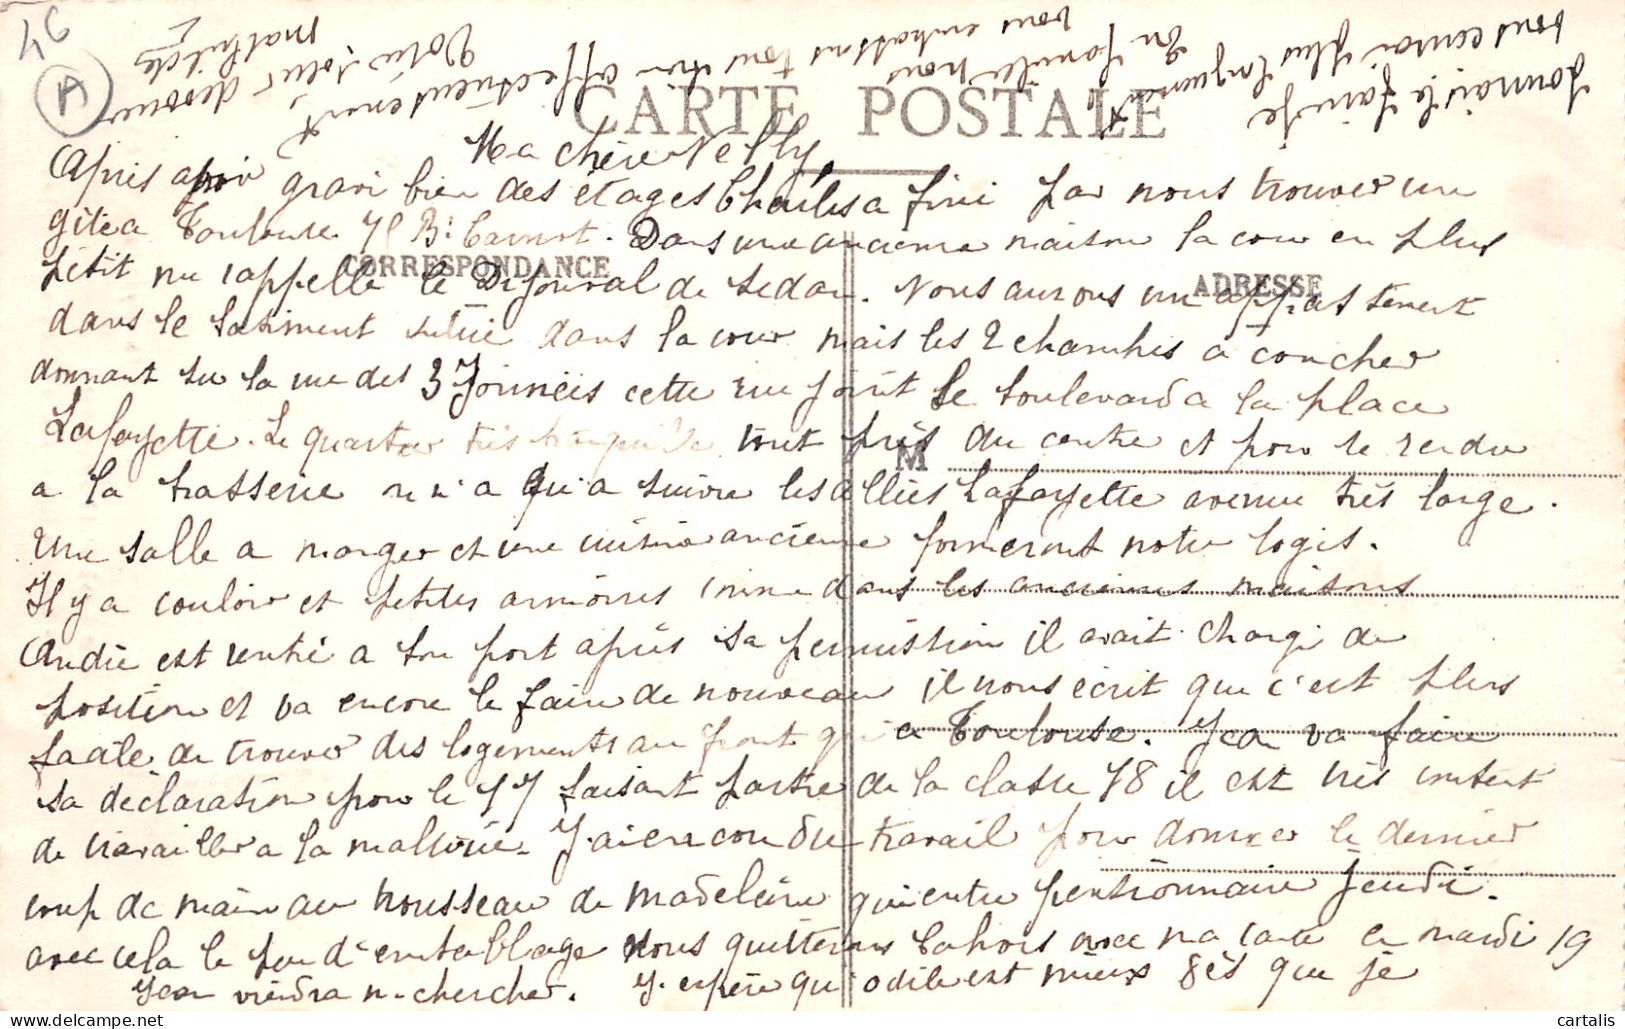 46
A
CARTE POSTALE
CORRESPONDANCE
ADRESSE
M
Ma chère Nelly,
Après avoir gravi bien des étages Charles a fini par nous trouver un
gîte a Toulouse 71 Bd Carnot. Dans une ancienne maison la cour en plus
petit me rappelle le de Sedan. Nous aurons un appartement
dans le batiment situé dans la cour mais les 2 chambres a coucher
donnant su la rue des 3 Journées cette rue joint le boulevard a la place
Lafayette. Le quartier très tranquille tout près du centre et pour se rendre
a la brasserie on n'a qu'a suivre les allées Lafayette avenue très large.
Une salle a manger et une cuisine ancienne formeront notre logis.
Il y a couloir et petites armoires comme dans les anciennes maisons
André est rentré a son port après sa permission il avait changé de
position et va encore le faire de nouveau il nous écrit que c'est plus
facile de trouver des logements au front qu'a Toulouse. Jean va faire
sa déclaration pour le 17 faisant partie de la classe 18 il est très content
de travailler a la malterie. J'ai encore du travail pour donner le dernier
coup de main au trousseau de Madeleine qui entre pensionnaire Jeudi.
avec cela le peu d'emballage nous quitterons Cahors avec ma tante le mardi 19
Jean viendra n. chercher. J'espère qu'Odile est mieux dès que je
pourrais le faire je
vous écrirai plus longuement
En famille nous
vous embrassons tous
affectueusement,
Votre sœur dévouée
Mathilde